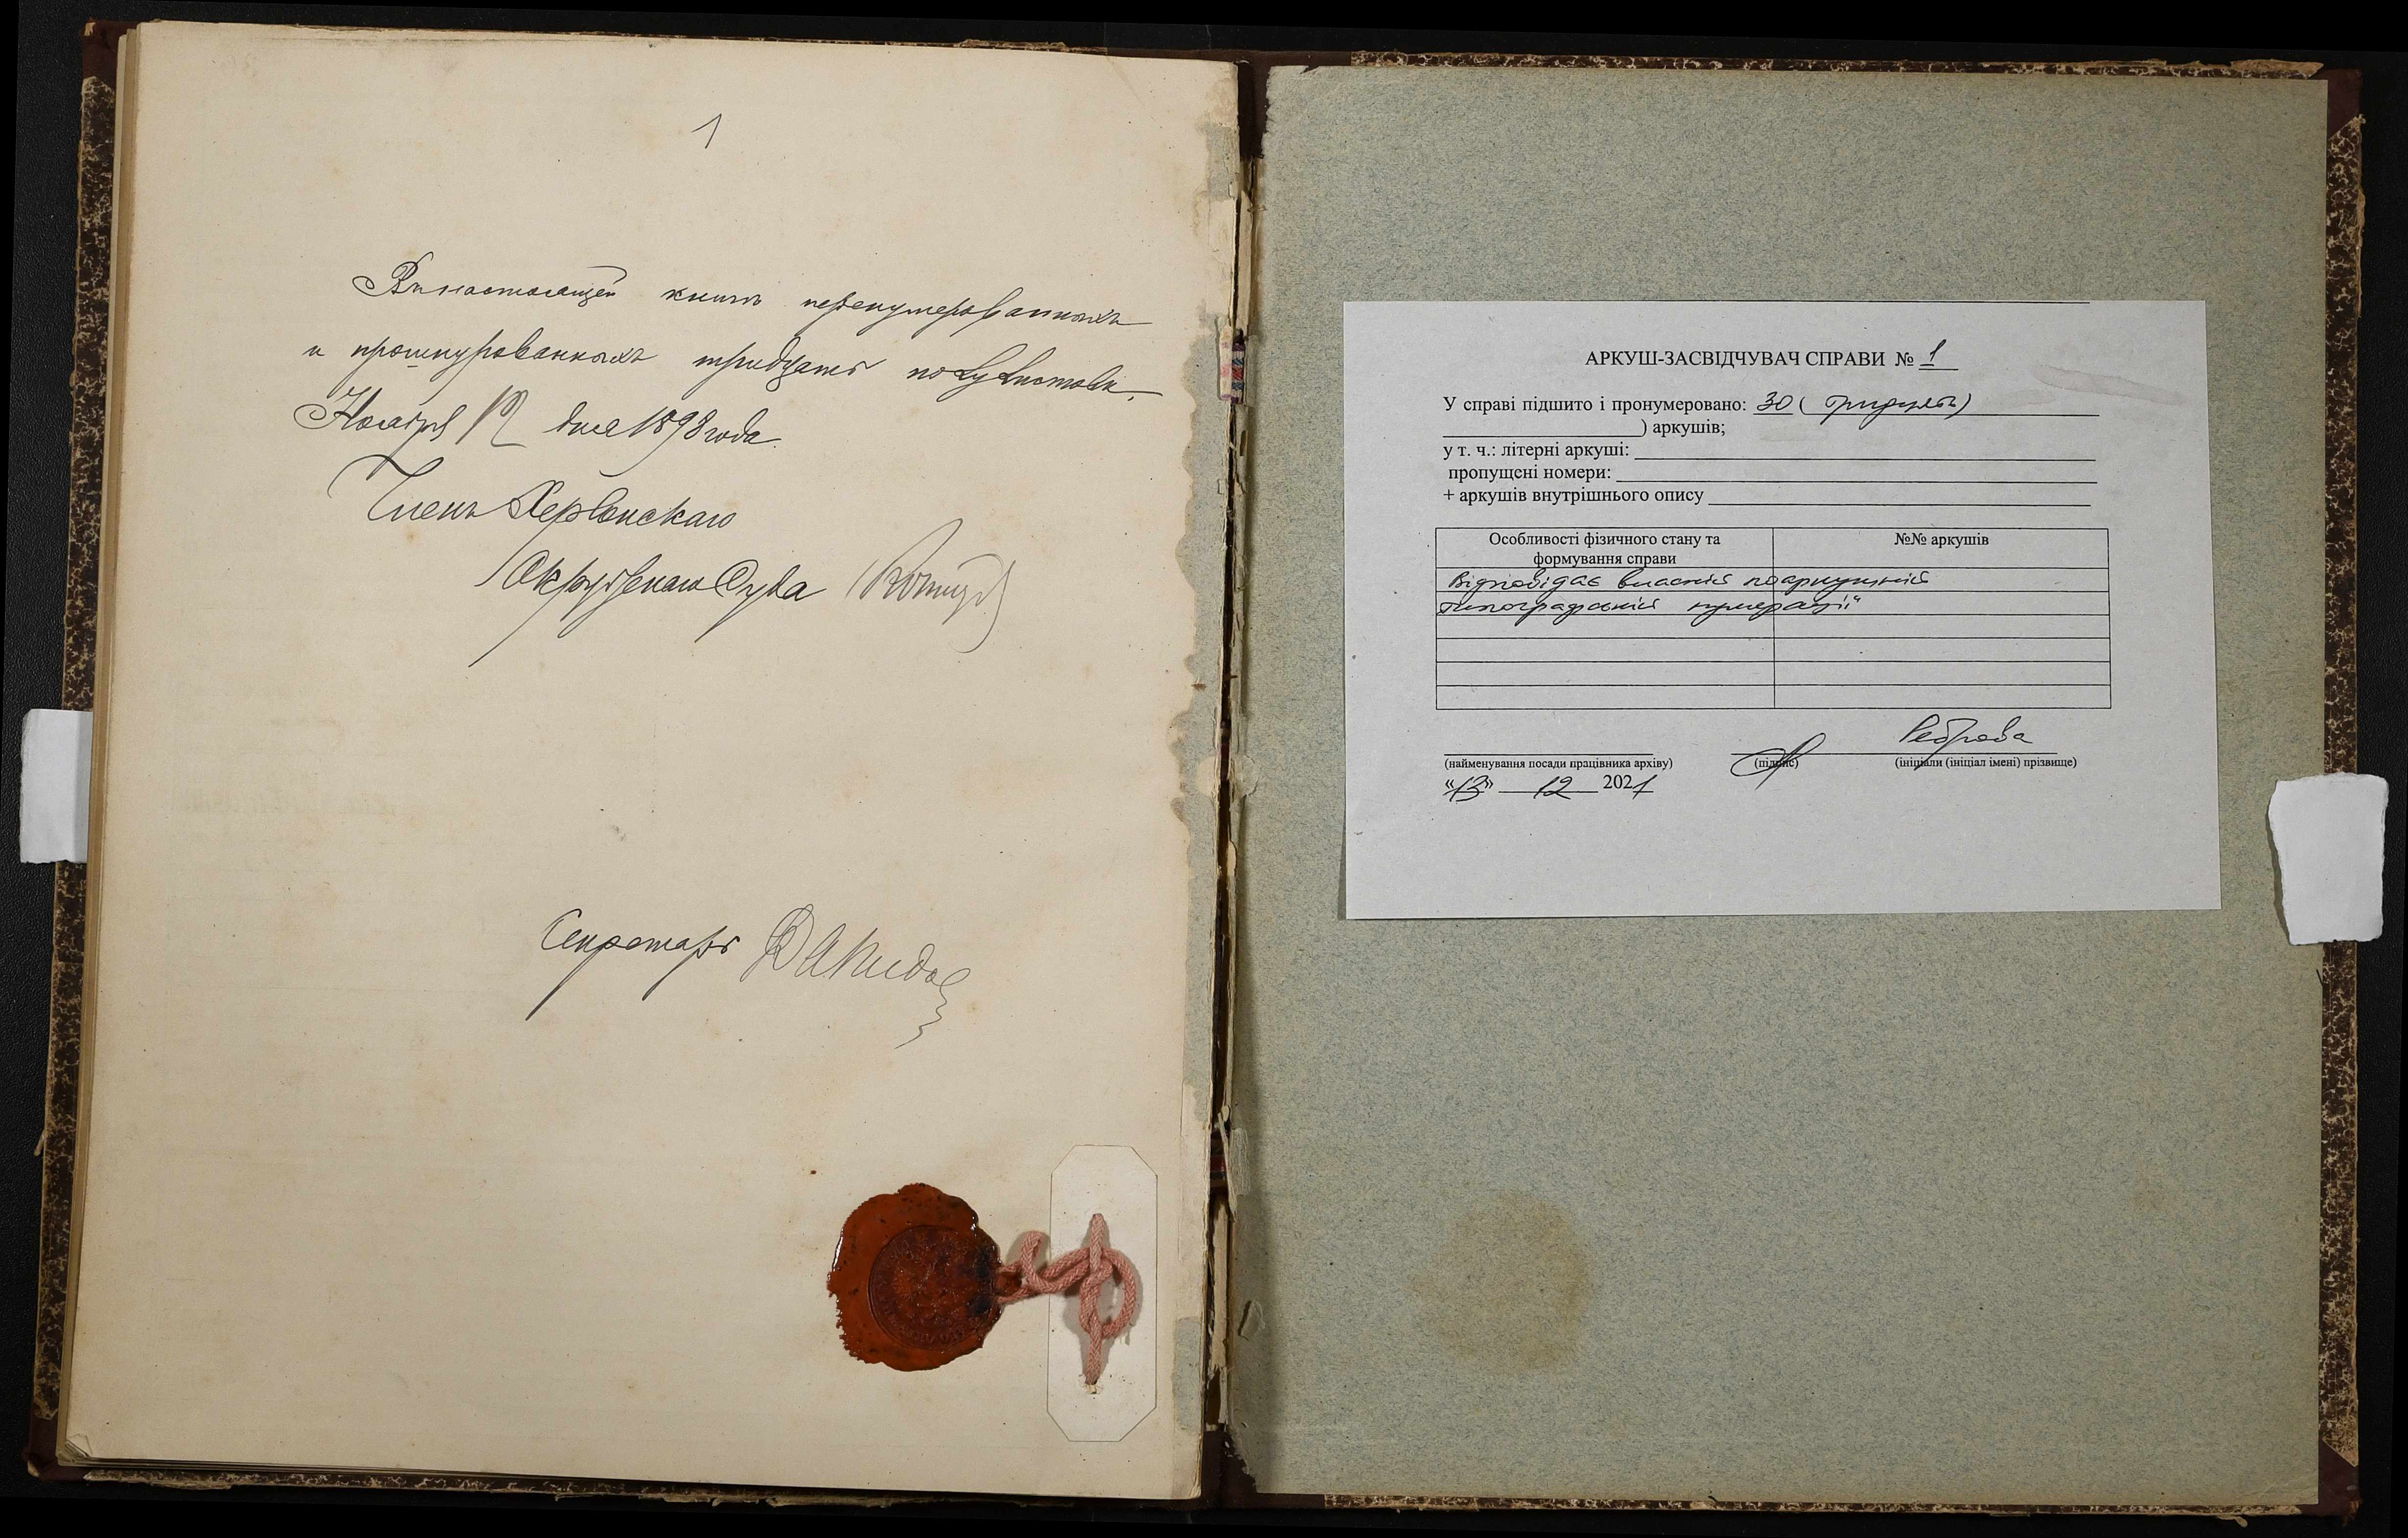 1
Въ настоящей книгѣ перенумерованныхъ
и прошнурованныхъ тридцать полулистовъ.
Ноября 12 дня 1898 года
Членъ Херсонскаго
Окружнаго Суда
Секретарь
АРКУШ-ЗАСВІДЧУВАЧ СПРАВИ № 1
У справі підшито і пронумеровано: 30 (тридцять)
) аркушів;
у т. ч.: літерні аркуші:
пропущені номери:
+ аркушів внутрішнього опису
Особливості фізичного стану та формування справи
№№ аркушів
Відповідає власній поаркушній
типографській нумерації
Реброва
(найменування посади працівника архіву) (підпис) (ініціали (ініціал імені) прізвище)
"13" 12 2021